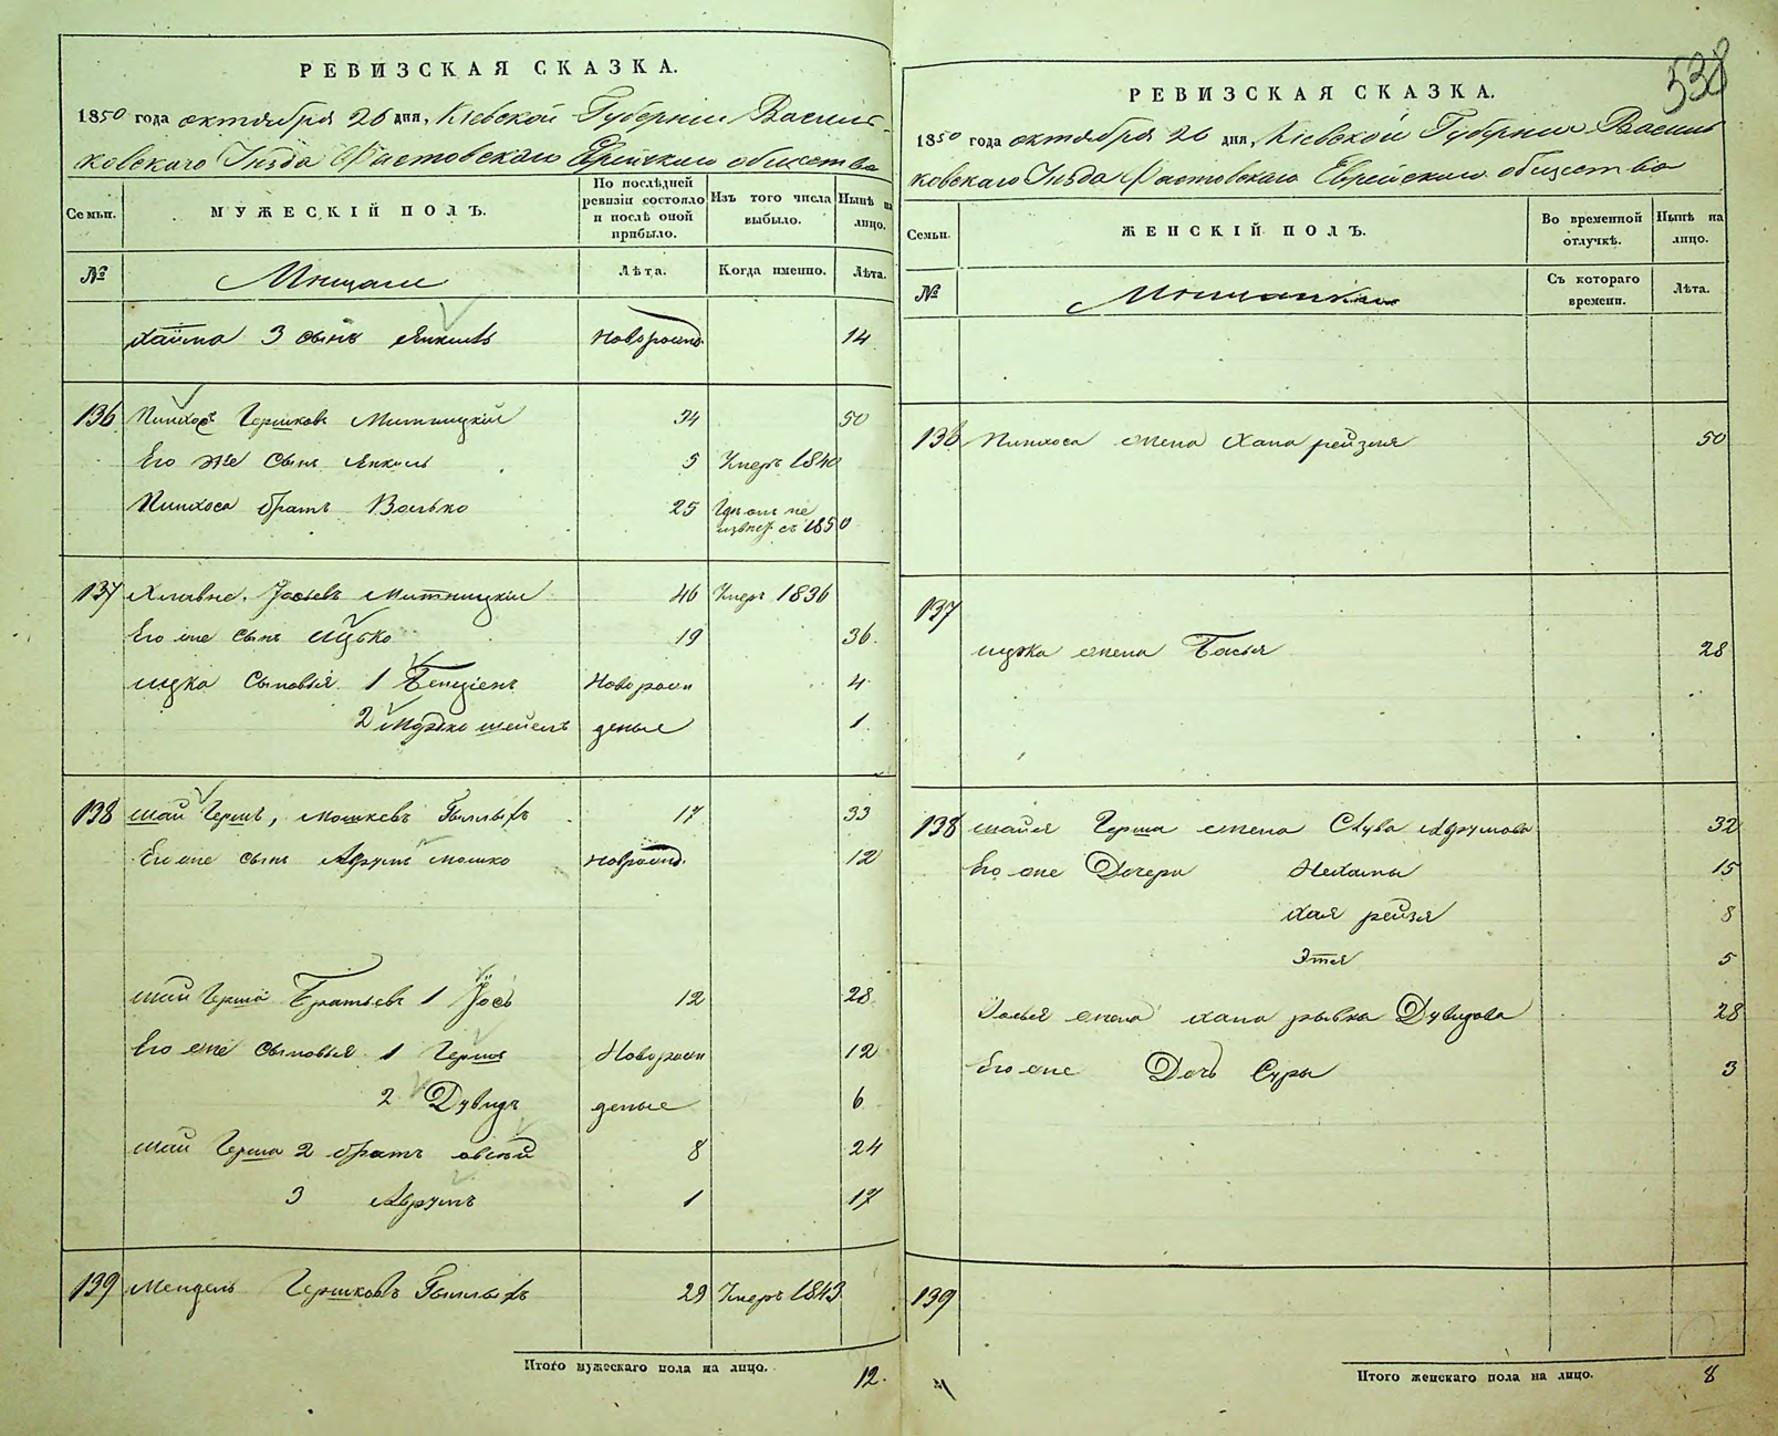 РЕВИЗСКАЯ СКАЗКА.
1850 года октября 26 дня, Кіевской Губерніи Василь-
ковскаго Уѣзда Фастовскаго Еврейскаго общества
Семьи.
МУЖЕСКІЙ ПОЛЪ.
По послѣдней ревизіи состояло и послѣ оной прибыло.
Изъ того числа выбыло.
Нынѣ на лицо.
№
Мѣщане
Лѣта.
Когда именно.
Лѣта.
Хаима 3 сынъ Янкель новорожд. 14
136 Пинхосъ Гершковъ Митницкій 34 50
Его же сынъ Янкель 5 Умеръ 1840
Пинхоса братъ Волько 25 Гдѣ онъ не
извѣст съ 1850
137 Хлавне Іосьевъ Митницкій 46 Умеръ 1836
Его же сынъ Ицько 19 36
Ицка Сыновья 1 Бенціенъ Новорож 4
2 Мордко деные 1
138 Шай Гершъ, Мошковъ 17 33
Его же сынъ Аврумъ Мошко новрожд. 12
Шай Герша Братьевъ 1 Іось 12 28
Его же сыновья 1 Гершъ Новорож 12
2 Дувидъ деные 6
Шай Герша 2 братъ Овсѣй 8 24
3 Аврумъ 1 17
139 Мендель Гершковъ 29 Умеръ 1843
Итого мужескаго пола на лицо. 12.
538
РЕВИЗСКАЯ СКАЗКА.
1850 года октября 26 дня, Кіевской Губерніи Василь
ковскаго Уѣзда Фастовскаго Еврейскаго общества
Семьи.
ЖЕНСКІЙ ПОЛЪ.
Во временной отлучкѣ.
Нынѣ на лицо.
№
Мѣщанки
Съ котораго времени.
Лѣта.
136 Пинхоса жена Хана Рейзля 50
137
Ицка жена Басья 28
138 Шайя Герша жена Слува Аврумова 32
Его же Дочери Нехамы 15
Хая Рейзя 8
Этея 5
Иосья жена Хана Рывка Дувидова 28
Его же Дочь Суры 3
139
Итого женскаго пола на лицо. 8